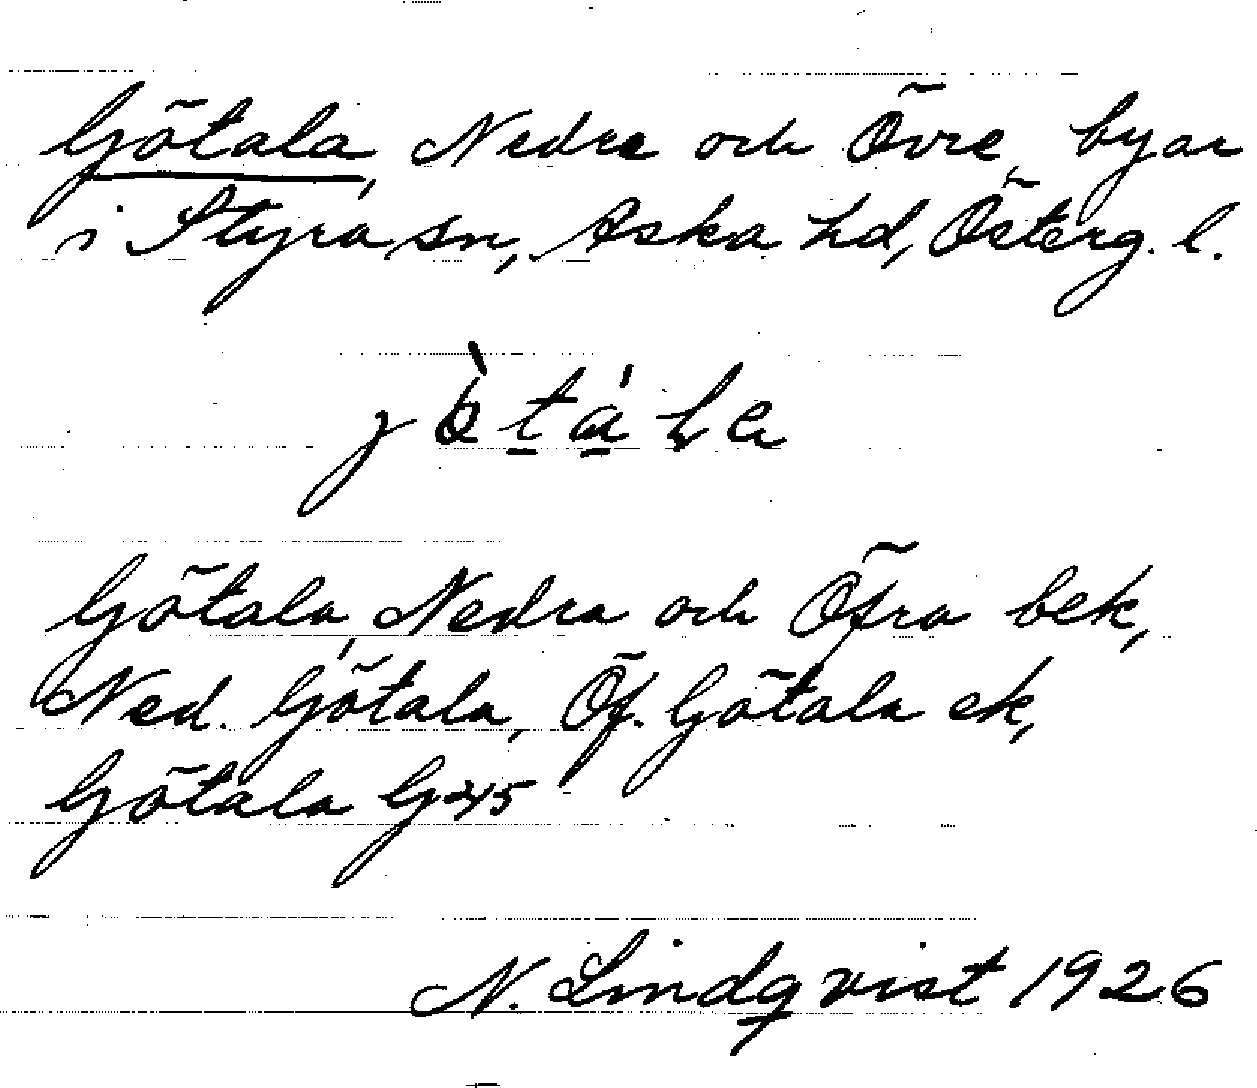 Götala, Nedre och Övre, byar
i Styra sn, Aska hd, Österg. l.
Götala, Nedra och Öfra bek,
Ned. Götala, Öf. Götala ek,
Götala G45
N. Lindqvist 1926